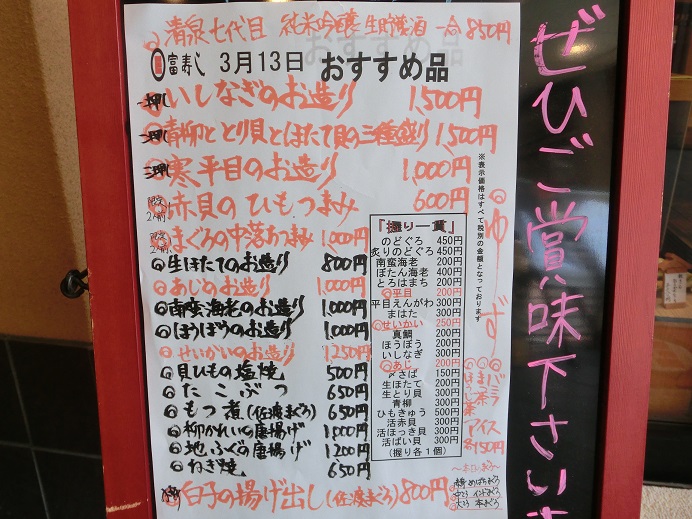 清泉七代目 純米吟醸 生貯蔵酒 一合 850円
富寿し 3月13日 おすすめ品
一押し いしなぎのお造り 1,500円
一押し 青柳ととり貝とほたて貝の三種盛り 1,500円
二押し 寒平目のお造り 1,000円
限定2人前 赤貝のひもつまみ 600円
限定2人前 まぐろの中落ちつまみ 1,000円
生ほたてのお造り 800円
あじのお造り 1,000円
南蛮海老のお造り 1,000円
ほうぼうのお造り 1,000円
せいがいのお造り 1,250円
貝ひもの塩焼 500円
たこぶつ 650円
もつ煮(佐渡まぐろ) 650円
柳かれいの唐揚げ 1,000円
地ふぐの唐揚げ 1,200円
ねぎ焼 650円
白子の揚げ出し(佐渡まぐろ) 800円
「握り一貫」
のどぐろ 450円
炙りのどぐろ 450円
南蛮海老 200円
ぼたん海老 400円
とろはまち 200円
平目 200円
平目えんがわ 300円
まはた 300円
せいかい 250円
真鯛 200円
ほうぼう 200円
いしなぎ 300円
あじ 200円
〆さば 150円
生ほたて 200円
生とり貝 300円
青柳 300円
ひもきゅう 500円
活赤貝 300円
活ほっき貝 300円
活ばい貝 300円
(握り各1個)
※表示価格はすべて税別の金額となっております
ゆず
バニラ
まっ茶
ほうじ茶
アイス
各150円
〜本日のまぐろ〜
めばちまぐろ
中とろ インドまぐろ
大とろ 本まぐろ
ぜひご賞味下さいま